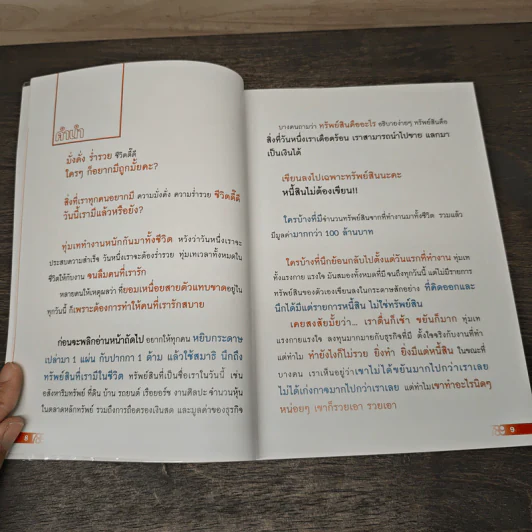 คำนำ
มั่งคั่ง ร่ำรวย ชีวิตดี๊ดี
ใครๆ ก็อยากมีถูกมั้ยคะ?
สิ่งที่เราทุกคนอยากมี ความมั่งคั่ง ความร่ำรวย ชีวิตดี๊ดี
วันนี้เรามีแล้วหรือยัง?
ทุ่มเททำงานหนักกันมาทั้งชีวิต หวังว่าวันหนึ่งเราจะ
ประสบความสำเร็จ วันหนึ่งเราจะต้องร่ำรวย ทุ่มเทเวลาทั้งหมดใน
ชีวิตให้กับงาน จนลืมคนที่เรารัก
หลายคนให้เหตุผลว่า ที่ยอมเหนื่อยสายตัวแทบขาดอยู่ใน
ทุกวันนี้ ก็เพราะต้องการทำให้คนที่เรารักสบาย
ก่อนจะพลิกอ่านหน้าถัดไป อยากให้ทุกคน หยิบกระดาษ
เปล่ามา 1 แผ่น กับปากกา 1 ด้าม แล้วใช้สมาธิ นึกถึง
ทรัพย์สินที่เรามีในชีวิต ทรัพย์สินที่เป็นชื่อเราในวันนี้ เช่น
อสังหาริมทรัพย์ ที่ดิน บ้าน รถยนต์ เรือยอร์ช งานศิลปะ จำนวนหุ้น
ในตลาดหลักทรัพย์ รวมถึงการถือครองเงินสด และมูลค่าของธุรกิจ
8
บางคนถามว่า ทรัพย์สินคืออะไร อธิบายง่ายๆ ทรัพย์สินคือ
สิ่งที่วันหนึ่งเราเดือดร้อน เราสามารถนำไปขาย แลกมา
เป็นเงินได้
เขียนลงไปเฉพาะทรัพย์สินนะคะ
หนี้สินไม่ต้องเขียน!!
ใครบ้างที่มีจำนวนทรัพย์สินจากที่ทำงานมาทั้งชีวิต รวมแล้ว
มีมูลค่ามากกว่า 100 ล้านบาท
ใครบ้างที่นึกย้อนกลับไปตั้งแต่วันแรกที่ทำงาน ทุ่มเท
ทั้งแรงกาย แรงใจ มันสมองทั้งหมดที่มี จนถึงทุกวันนี้ แต่ไม่มีรายการ
ทรัพย์สินของตัวเองเขียนลงในกระดาษสักอย่าง ที่คิดออกและ
นึกได้มีแต่รายการหนี้สิน ไม่ใช่ทรัพย์สิน
เคยสงสัยมั้ยว่า... เราตื่นก็เช้า ขยันก็มาก ทุ่มเท
แรงกายแรงใจ ลงทุนมากมายกับธุรกิจที่มี ตั้งใจจริงกับงานที่ทำ
แต่ทำไม ทำยังไงก็ไม่รวย ยิ่งทำ ยิ่งมีแต่หนี้สิน ในขณะที่
บางคน เราเห็นอยู่ว่าเขาไม่ได้ขยันมากไปกว่าเราเลย
ไม่ได้เก่งกาจมากไปกว่าเราเลย แต่ทำไมเขาทำอะไรนิดๆ
หน่อยๆ เขาก็รวยเอา รวยเอา
9